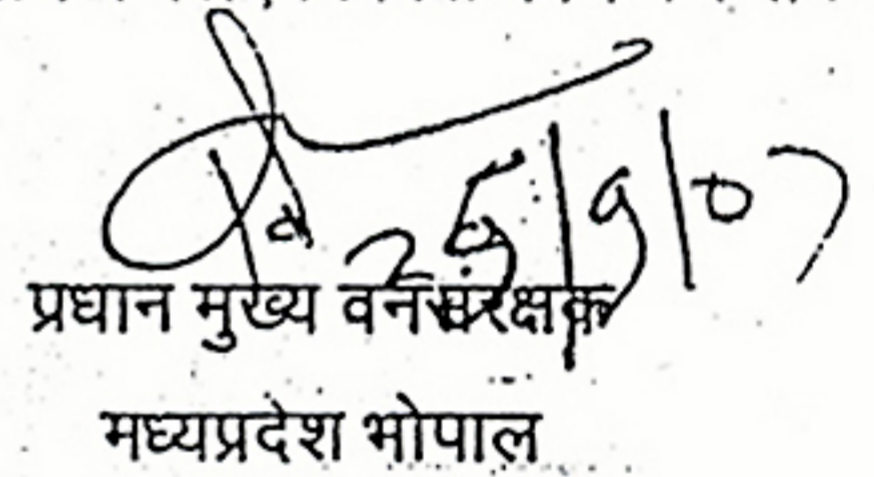 25/9/07
प्रधान मुख्य वनसंरक्षक
मध्यप्रदेश भोपाल